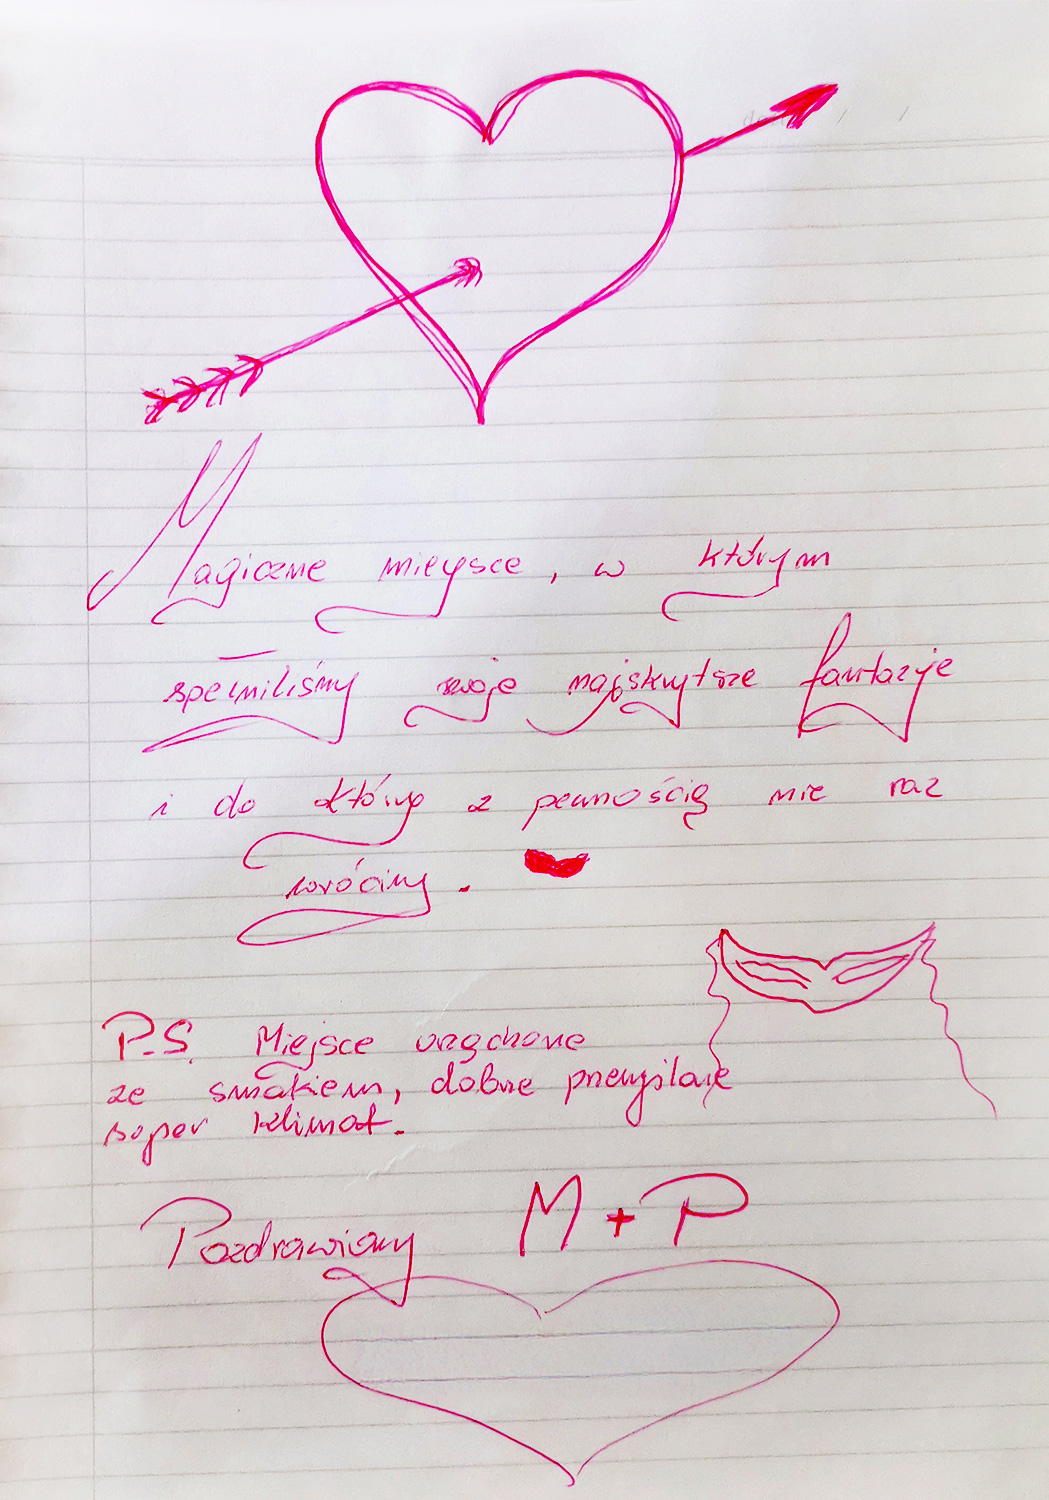 Magiczne miejsce, w którym
spełniliśmy swoje najskrytsze fantazje
i do którego z pewnością nie raz
wrócimy.
P.S. Miejsce urządzone
ze smakiem, dobrze przemyślane
super klimat.
Pozdrawiamy M + P